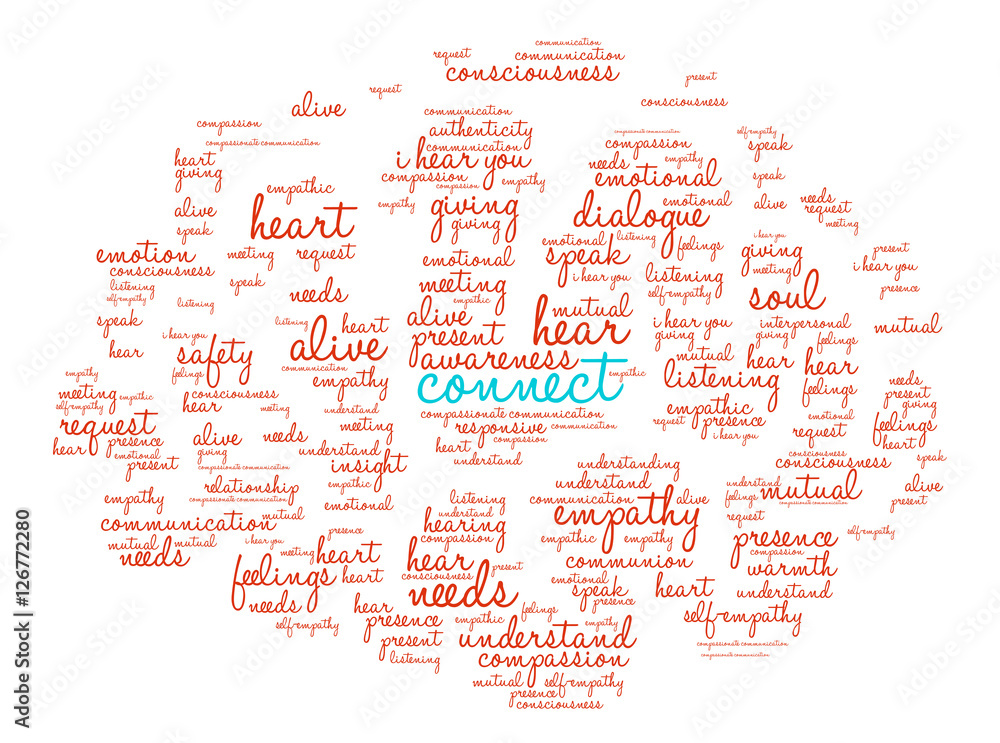 communication
request communication
consciousness present
request consciousness
alive communication
compassion authenticity compassionate communication self-empathy
compassionate communication communication compassion speak
heart i hear you needs empathy
giving compassion empathy emotional speak
empathic compassion
alive empathy giving emotional alive needs
heart dialogue request
speak giving i hear you
emotion meeting request emotional emotional listening feelings giving present
consciousness speak i hear you meeting i hear you
speak needs meeting listening presence
self-empathy listening empathic self-empathy soul
speak listening heart alive mutual i hear you interpersonal mutual
i hear you present hear giving feelings
hear safety alive awareness mutual hear hear
empathy feelings empathy connect empathic listening feelings needs
meeting empathic consciousness present
self-empathy hear meeting understand compassionate communication empathic emotional giving
request presence alive needs meeting responsive communication request presence request feelings
hear emotional understand heart compassion i hear you heart
present compassionate communication insight understand understanding consciousness speak
relationship empathic understand understand alive
empathy compassionate communication emotional listening communication alive feelings mutual present
communication mutual understand empathy request
mutual mutual i hear you presence hearing empathic empathy presence self-empathy
needs meeting heart compassion communion compassion
feelings heart hear present emotional warmth
consciousness speak heart understand
needs hear needs presence
self-empathy presence feelings empathy self-empathy
present understand
listening compassion compassionate communication compassionate communication
mutual self-empathy
presence
consciousness
Adobe Stock | #126772280
Adobe Stock